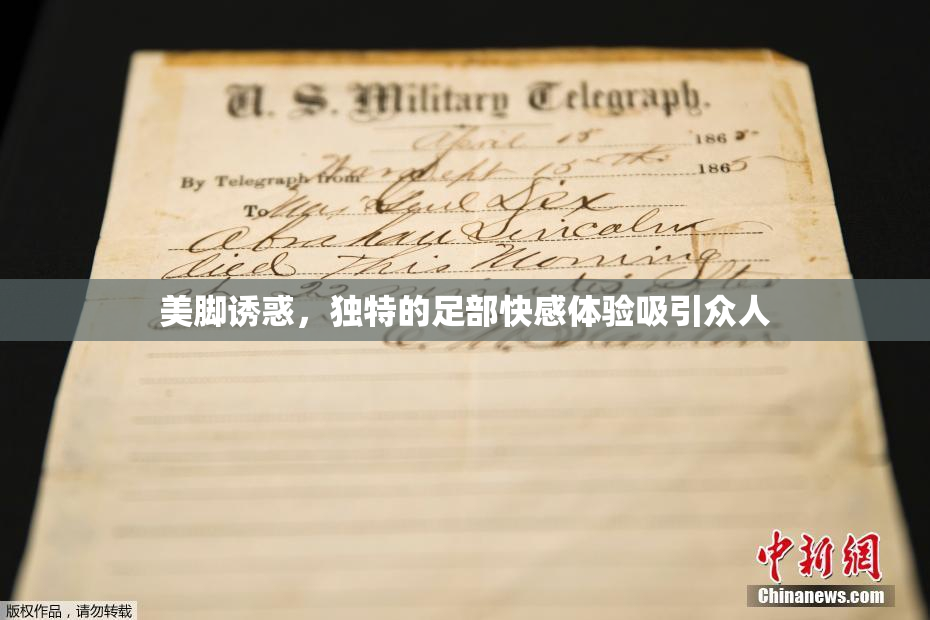 U. S. Military Telegraph.
April 15 1865
By Telegraph from War Dept 15th 1865
To Maj Genl Dix
Abraham Lincoln
died This Morning
at 22 minutes after
美脚诱惑，独特的足部快感体验吸引众人
E. M. Stanton
中新网
Chinanews.com
版权作品，请勿转载